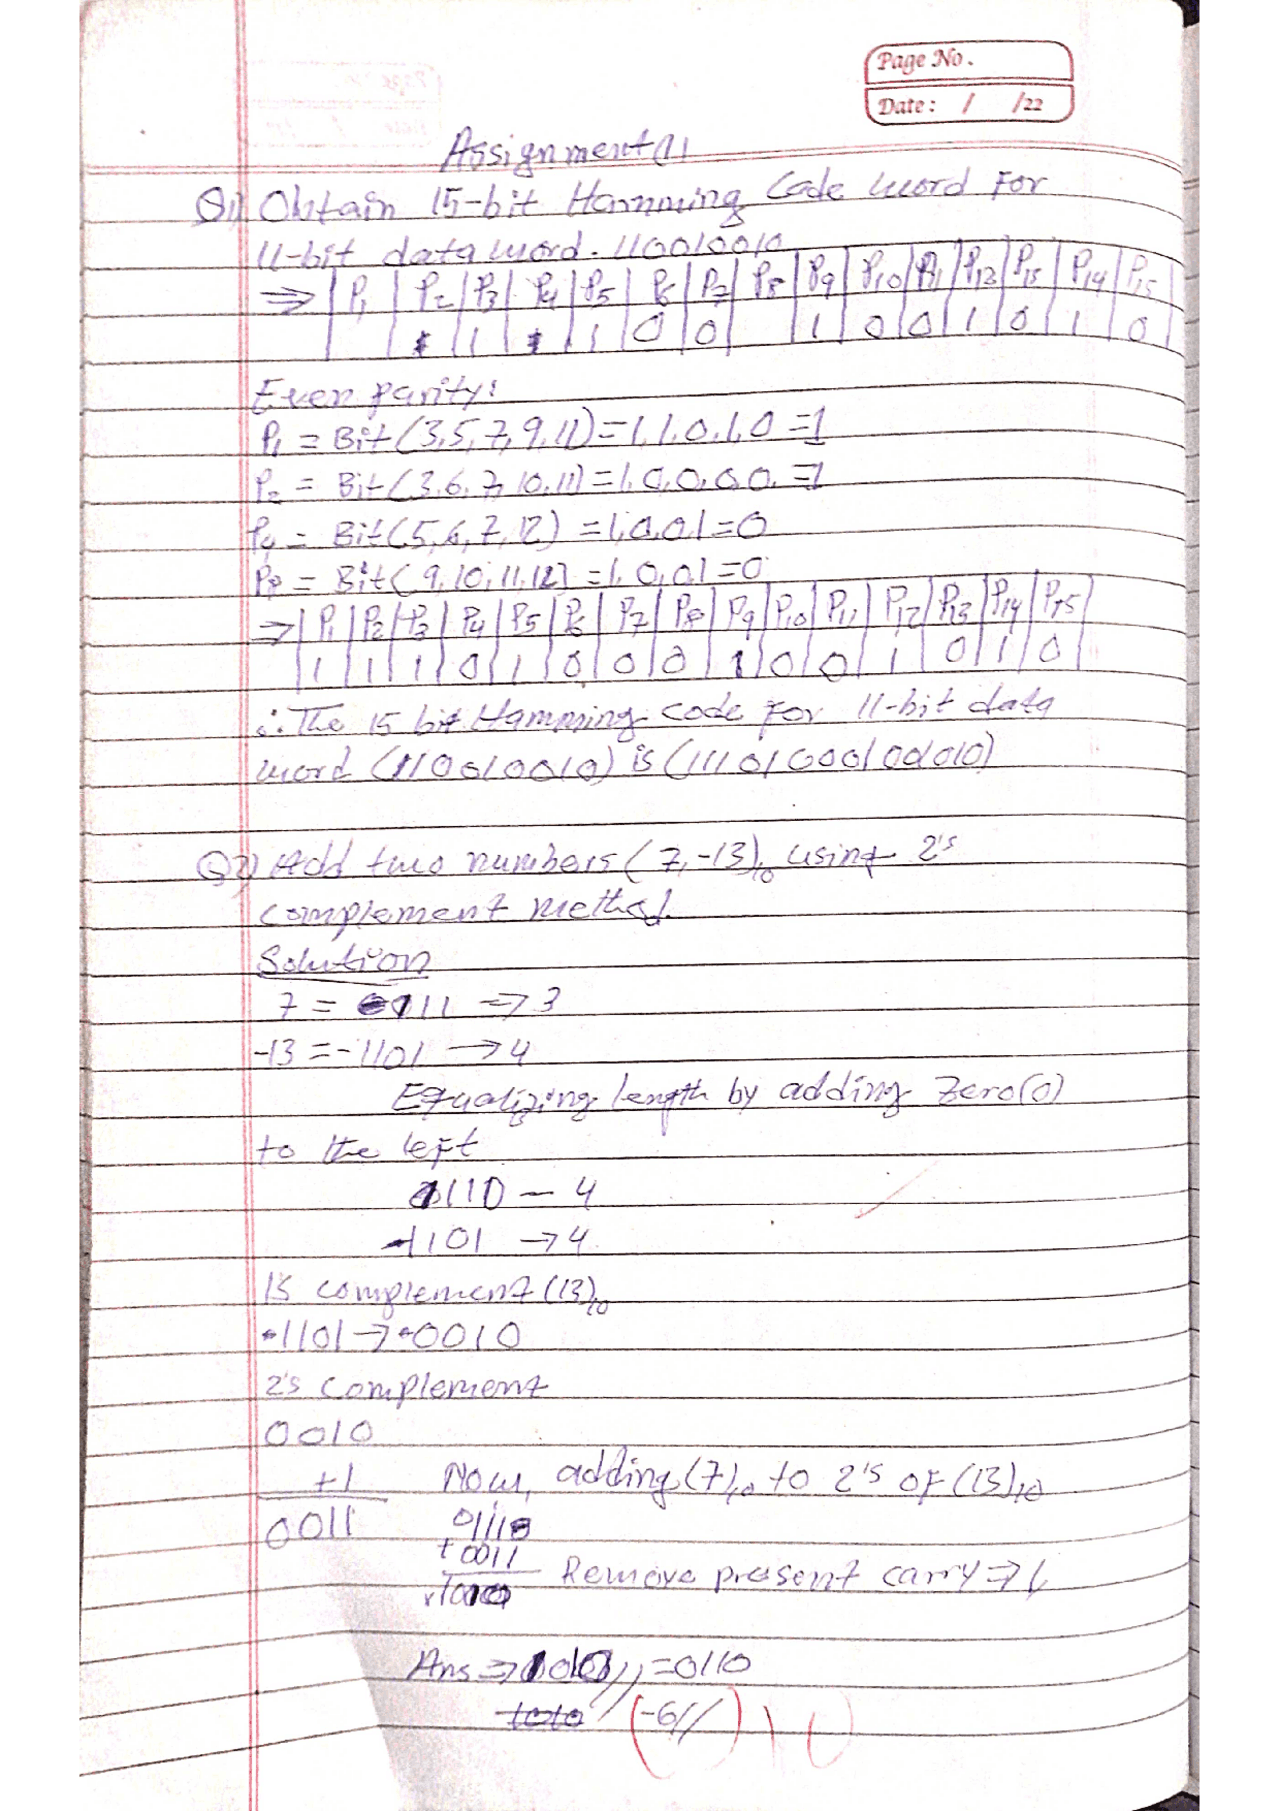 Page No.
Date: / /22
Assignment (1)
Q1) Obtain 15-bit Hamming Code word for
11-bit data word. 110010010
⇒ | P1 | P2 | P3 | P4 | P5 | P6 | P7 | P8 | P9 | P10 | P11 | P12 | P13 | P14 | P15
1 1 0 0 1 0 0 1 0 1 0
Even parity:
P1 = Bit (3,5,7,9,11) = 1,1,0,1,0 = 1
P2 = Bit (3,6,7,10,11) = 1,0,0,0,0, = 1
P4 = Bit (5,6,7,12) = 1,0,0,1 = 0
P8 = Bit (9,10,11,12) = 1,0,0,1 = 0
⇒ | P1 | P2 | P3 | P4 | P5 | P6 | P7 | P8 | P9 | P10 | P11 | P12 | P13 | P14 | P15
| 1 | 1 | 1 | 0 | 1 | 0 | 0 | 0 | 1 | 0 | 0 | 1 | 0 | 1 | 0 |
∴ The 15 bit Hamming code for 11-bit data
word (110010010) is (111010001001010)
Q2) Add two numbers (7,-13)10 using 2's
complement method.
Solution
7 = 111 ⇒ 3
-13 = -1101 → 4
Equalizing length by adding Zero(0)
to the left
0110 - 4
-1101 → 4
1's complement (13)10
1101 → 0010
2's complement
0010
+1 Now, adding (7)10 to 2's of (13)10
0011 0111
+ 0011 Remove present carry ⇒ 1
1010
Ans ⇒ 1010// = 0110
1010 (-6//) 10